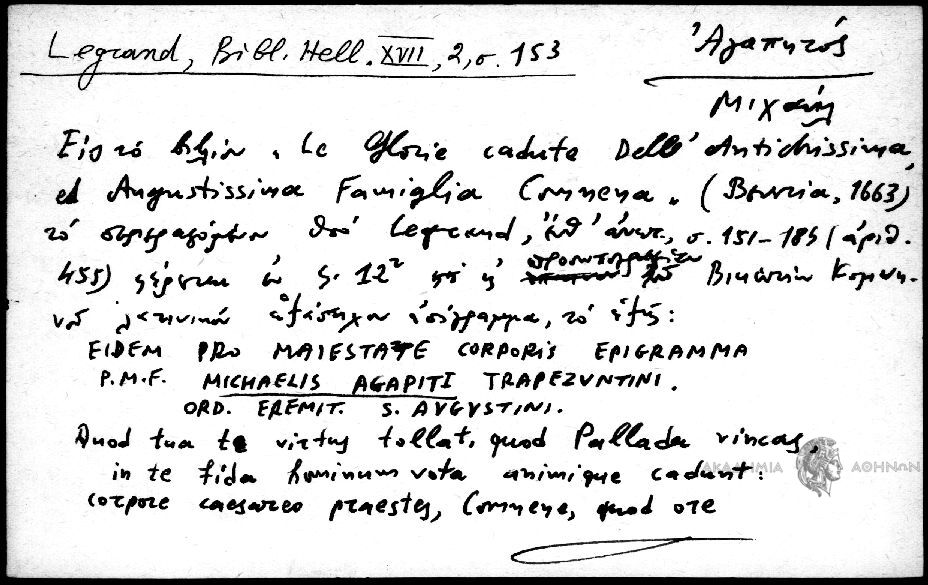 Legrand, Bibl. Hell. XVII, 2, σ. 153
Ἀγαπητός
Μιχαήλ
Εἰς τὸ βιβλίον "Le Glorie cadute Dell' Antichissima,
ed Augustissima Famiglia Comnena" (Βενετία, 1663)
τὸ περιγραφόμενον ὑπὸ Legrand, ἔνθ' ἀνωτ., σ. 151-184 (ἀριθ.
455) φέρεται ἐν 12² προσωπογραφίαν τοῦ Βικεντίου Κομνη-
νοῦ λατινικὸν ἑξάστιχον ἐπίγραμμα, τὸ ἑξῆς:
EIDEM PRO MAIESTATE CORPORIS EPIGRAMMA
P.M.F. MICHAELIS AGAPITI TRAPEZVNTINI.
ORD. EREMIT. S. AVGVSTINI.
Quod tua te virtus tollat, quod Pallada vincas,
in te fida hominum vota animique cadunt:
corpore caesareo praestes, Comnene, quod ore
ΑΚΑΔΗΜΙΑ ΑΘΗΝΩΝ